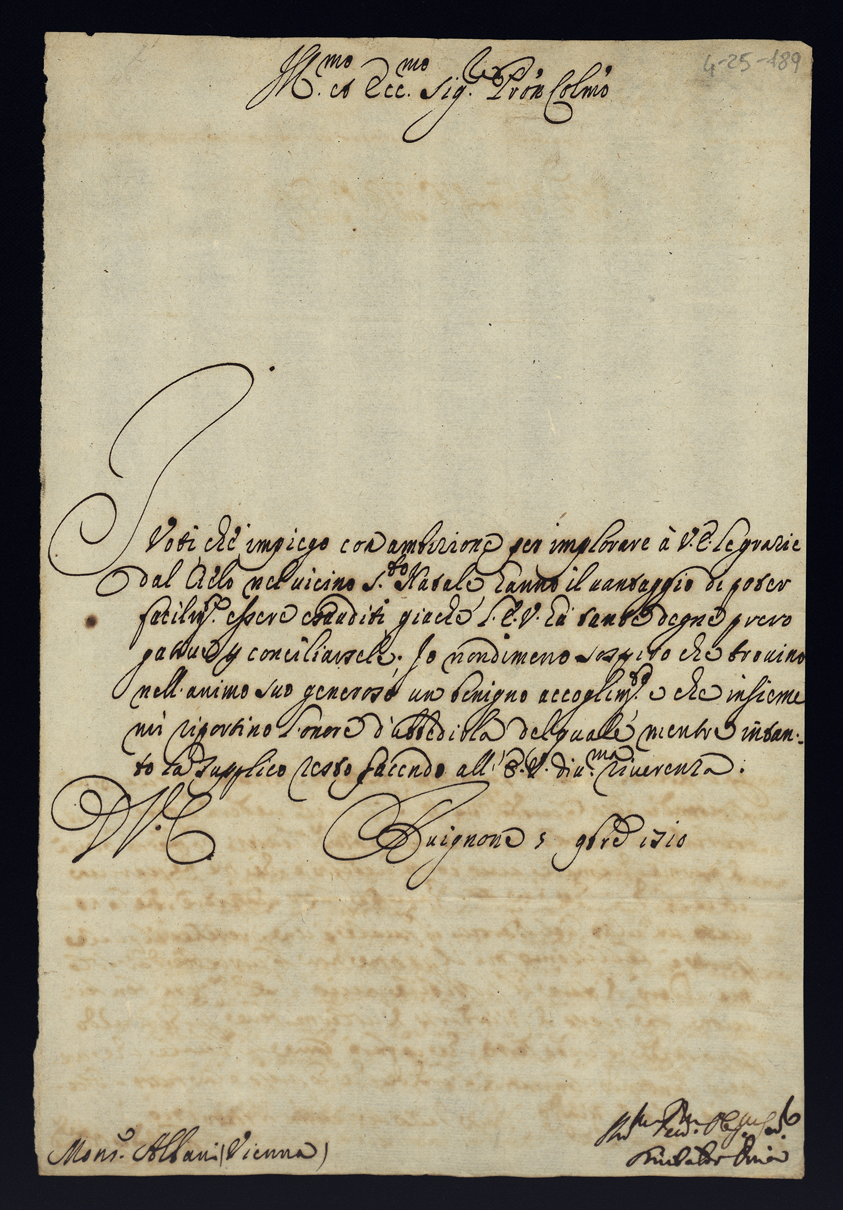 4-25-189
Ill.mo et Ecc.mo Sig.re Pròn Colmo
I Voti che impiego con ambizione per implorare à V.E. le grazie
dal Cielo nel vicino S.to Natale hanno il vantaggio di poter
facilm.te essere esauditi giache l'E.V. hà tante degne prero
gative p conciliarsele. Io nondimeno sospiro che trovino
nell'animo suo generoso un benigno accoglim.to e che insieme
mi riportino l'onore d'obbedirla del quale mentre intan-
to la supplico resto facendo all'E.V. div.ma riverenza.
D V.E. Avignone 5 9bre 1710
Mons.r Albani (Vienna)